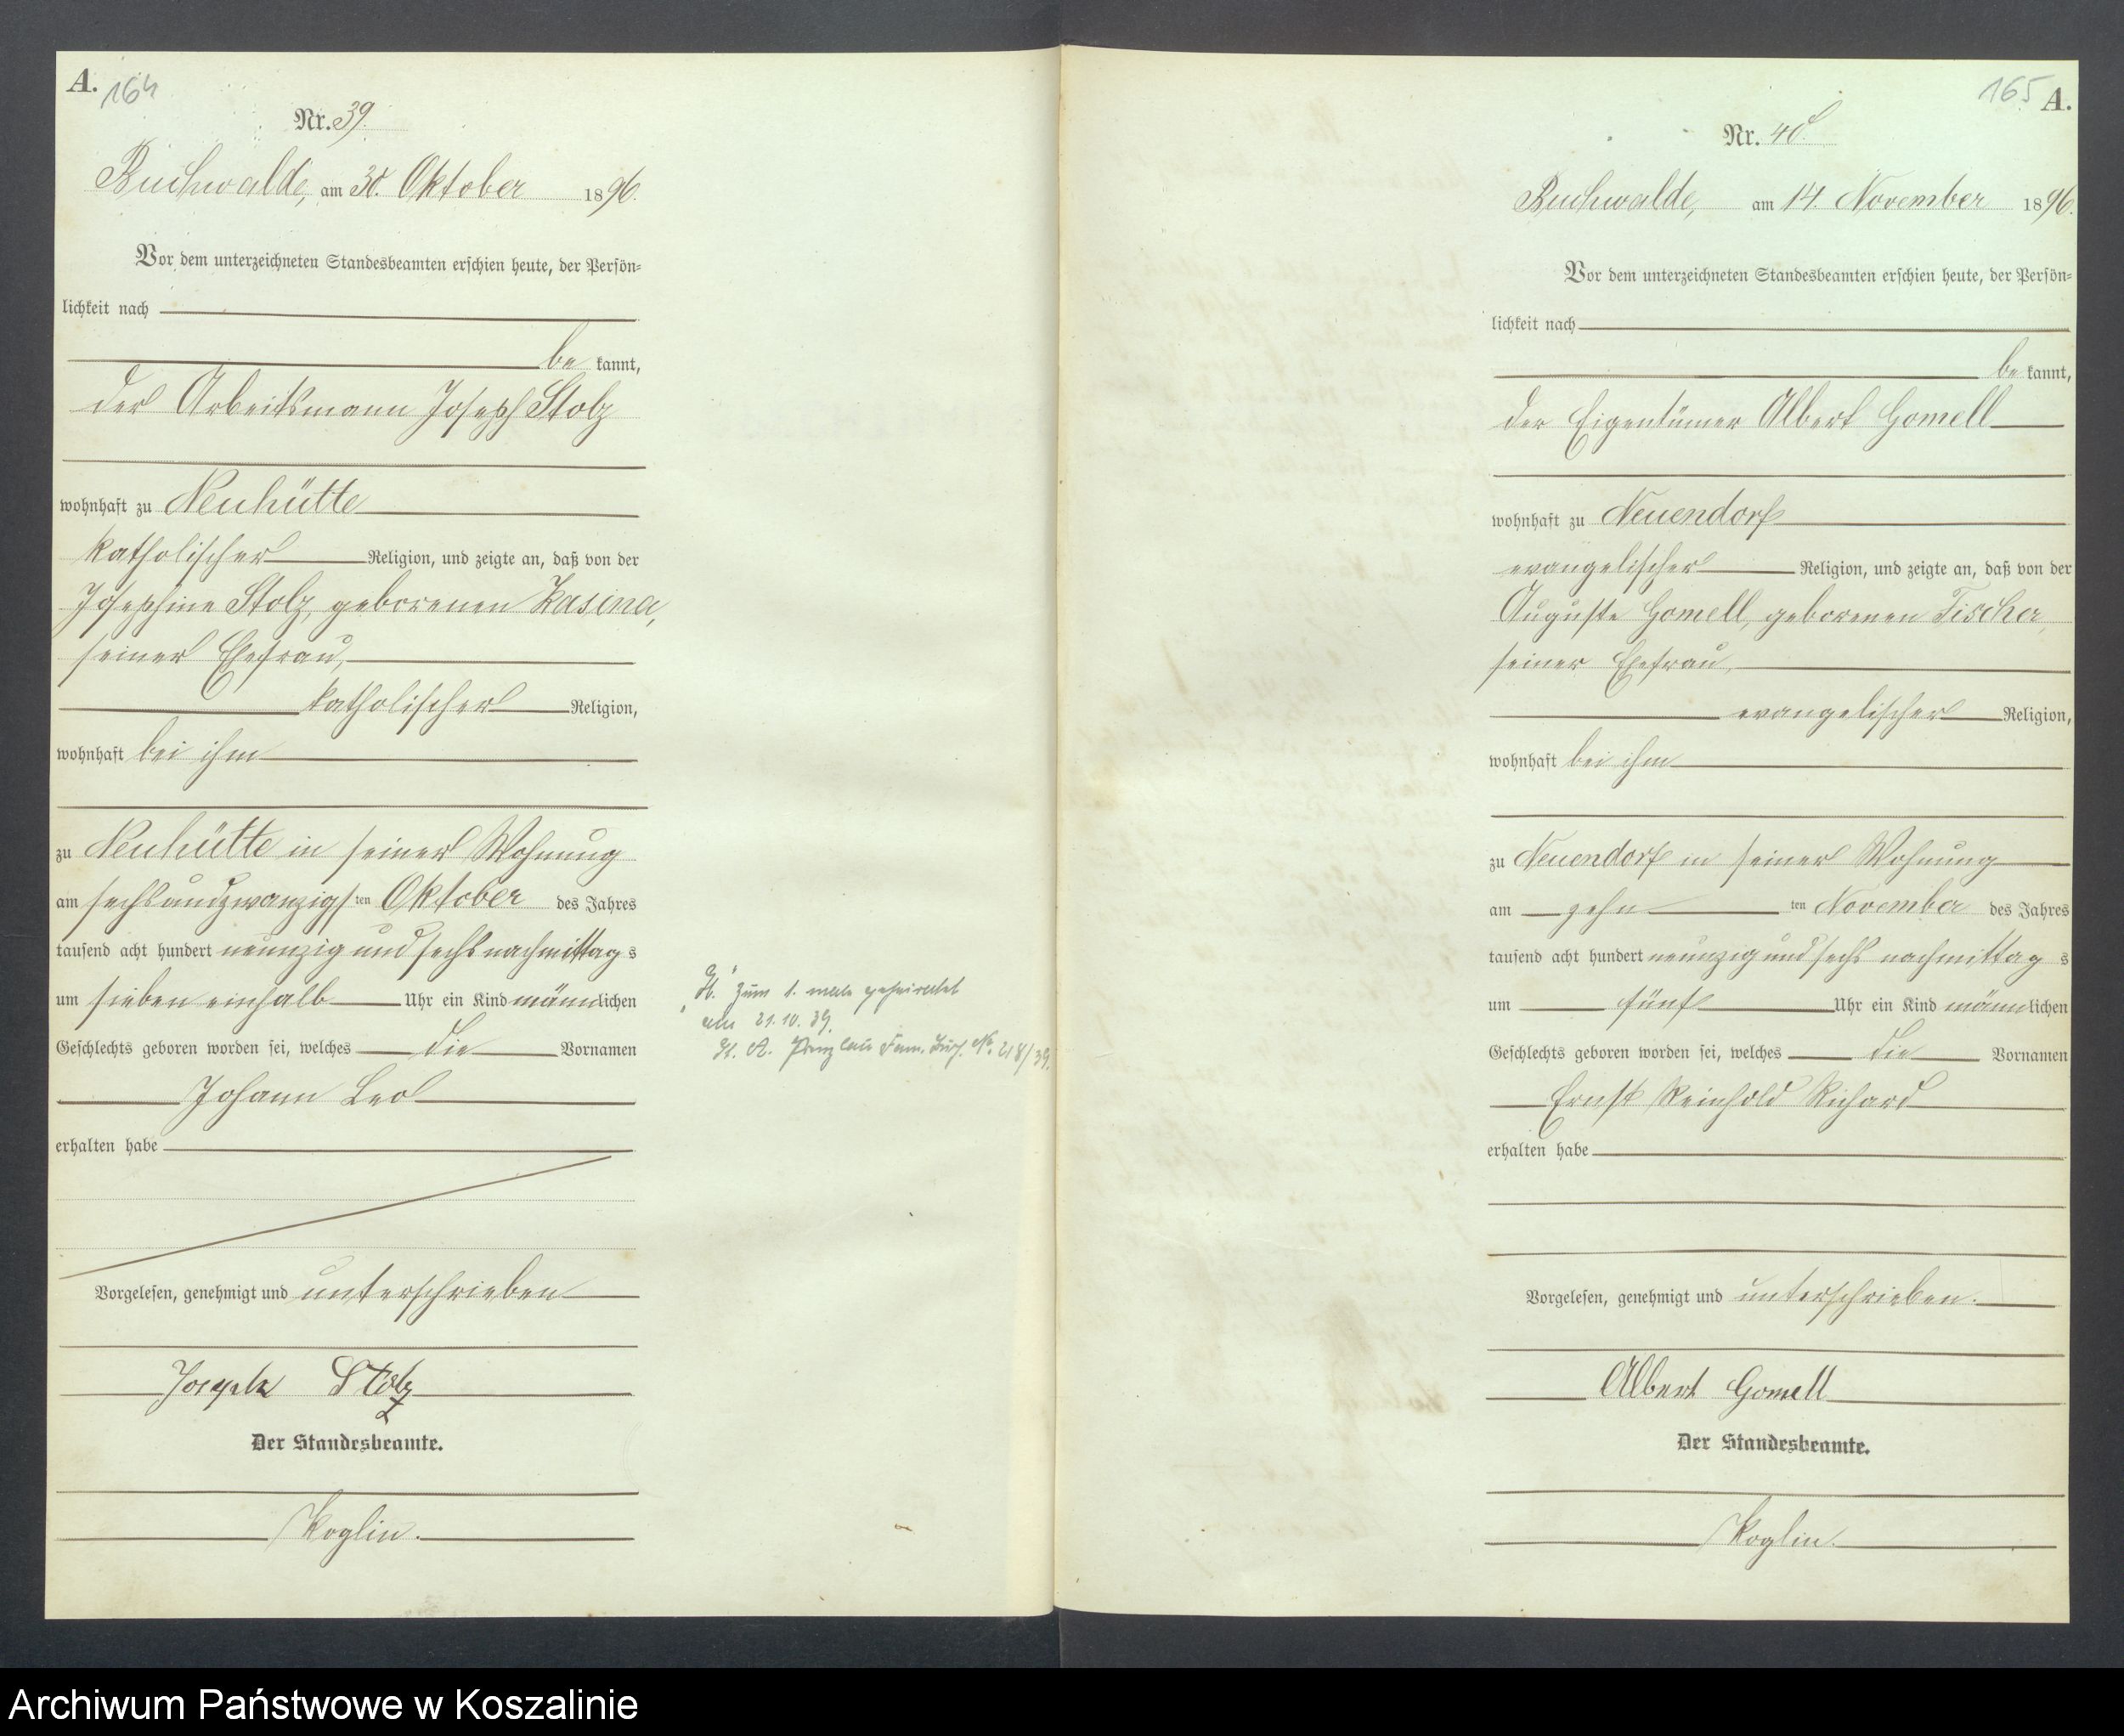 A. 164
Nr. 39.
Buchwalde, am 30. Oktober 1896.
Vor dem unterzeichneten Standesbeamten erschien heute, der Persön-
lichkeit nach
be kannt,
der Arbeitsmann Joseph Stolz
wohnhaft zu Neuhütte
katholischer Religion, und zeigte an, daß von der
Josephine Stolz, geborenen Kasina,
seiner Ehefrau,
katholischer Religion,
wohnhaft bei ihm
zu Neuhütte in seiner Wohnung
am sechsundzwanzigsten Oktober des Jahres
tausend acht hundert neunzig und sechs nachmittags
um sieben einhalb Uhr ein Kind männlichen
Geschlechts geboren worden sei, welches die Vornamen
Johann Leo
erhalten habe
Vorgelesen, genehmigt und unterschrieben
Joseph Stolz
Der Standesbeamte.
Koglin.
zum 1. male geheiratet
am 21.10.39.
St. A. No. 218/39.
165 A.
Nr. 40.
Buchwalde, am 14. November 1896.
Vor dem unterzeichneten Standesbeamten erschien heute, der Persön-
lichkeit nach
be kannt,
der Eigentümer Albert Gomell
wohnhaft zu Neuendorf
evangelischer Religion, und zeigte an, daß von der
Auguste Gomell, geborenen Fischer,
seiner Ehefrau,
evangelischer Religion,
wohnhaft bei ihm
zu Neuendorf in seiner Wohnung
am zehnten November des Jahres
tausend acht hundert neunzig und sechs nachmittags
um fünf Uhr ein Kind männlichen
Geschlechts geboren worden sei, welches die Vornamen
Ernst Reinhold Richard
erhalten habe
Vorgelesen, genehmigt und unterschrieben.
Albert Gomell
Der Standesbeamte.
Koglin.
Archiwum Państwowe w Koszalinie